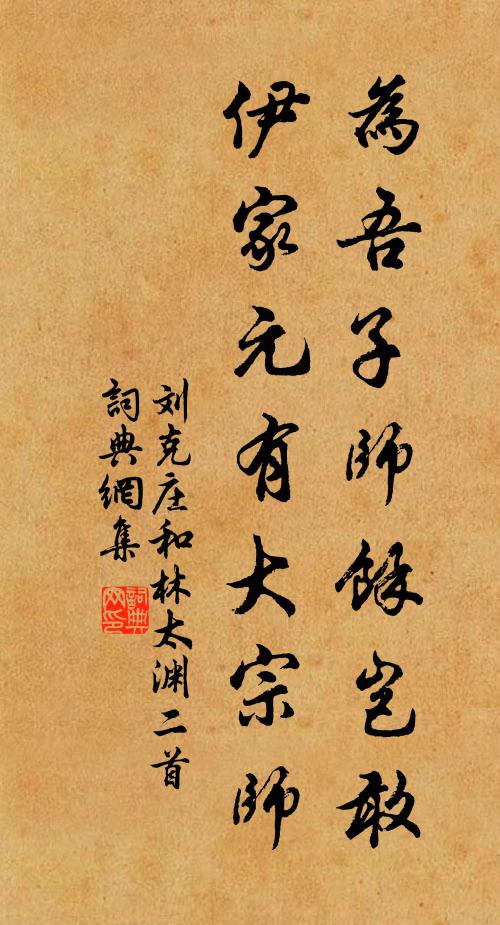 為吾子師餘岂敢
伊家元有大宗師
刘克庄和林太渊二首
詞典網集
詞典
网印